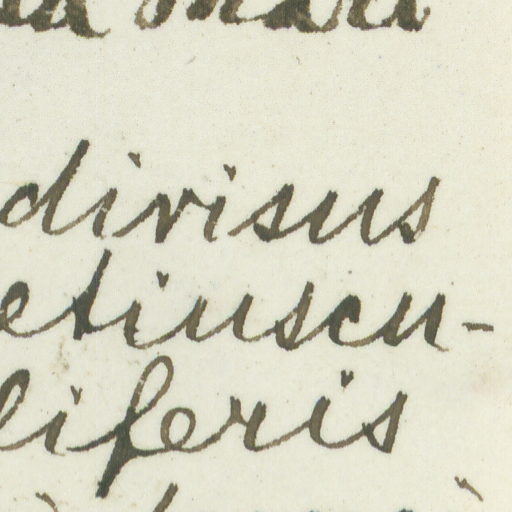 divisus
etiuscu-
liferis